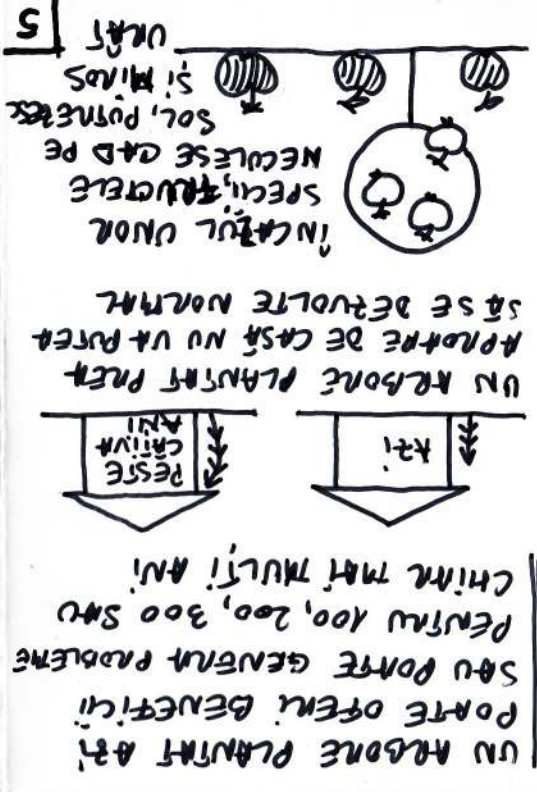 UN ARBORE PLANTAT AZI
POATE OFERI BENEFICII
SAU POATE GENERA PROBLEME
PENTRU 100, 200, 300 SAU
CHIAR MAI MULȚI ANI
AZI
PESTE
CÂTIVA
ANI
UN ARBORE PLANTAT PREA
APROAPE DE CASĂ NU VA PUTEA
SĂ SE DEZVOLTE NORMAL
ÎN CAZUL UNOR
SPECII, FRUCTELE
NECULESE CAD PE
SOL, PUTREZESC
ȘI MIROS
URÂT
5